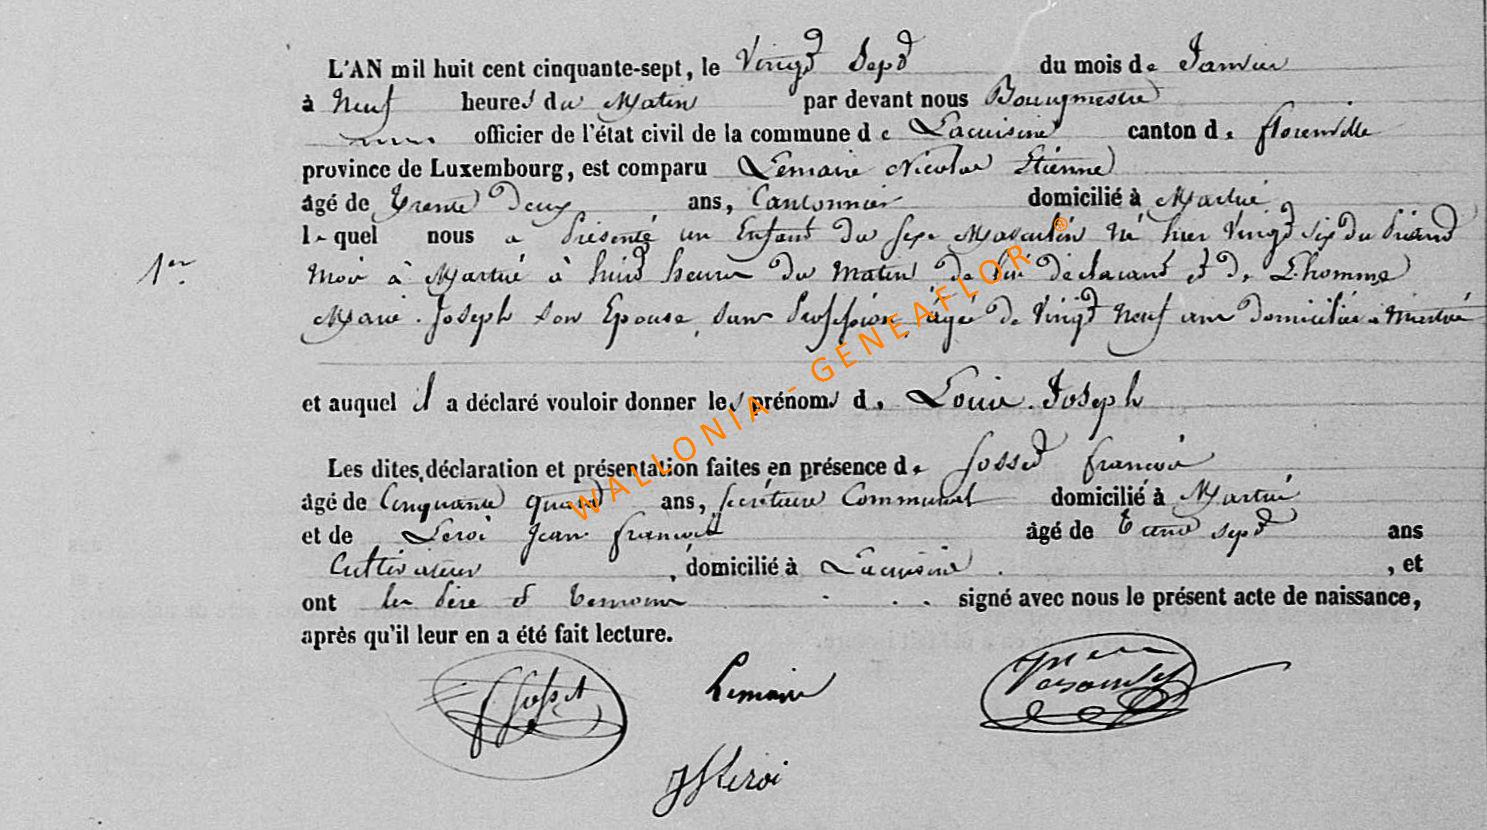 L'AN mil huit cent cinquante-sept, le Vingt Sept du mois de Janvier
à Neuf heures du Matin par devant nous Bourgmestre
officier de l'état civil de la commune de Lacuisine canton de florenville
province de Luxembourg, est comparu Lemaire Nicolas Etienne
âgé de Trente Deux ans, Cantonnier domicilié à Martué
lequel nous a Présenté un Enfant Du Sexe Masculin Né hier Vingt Six du Présent
1er
Mois à Martué à huit heures Du Matin De lui Déclarant et De L'homme
Marie Joseph Son Epouse, Sans Profession, âgée De Vingt Neuf ans Domiciliée à Martué
et auquel il a déclaré vouloir donner les prénoms de Louis Joseph
Les dites déclaration et présentation faites en présence de Josset françois
âgé de Cinquante quatre ans, Secrétaire Communal domicilié à Martué
et de Leroi Jean françois âgé de trente sept ans
Cultivateur, domicilié à Lacuisine, et
ont les Père et témoins signé avec nous le présent acte de naissance,
après qu'il leur en a été fait lecture.
f Josset Lemaire
JfLeroi
WALLONIA - GENEAFLOR ®